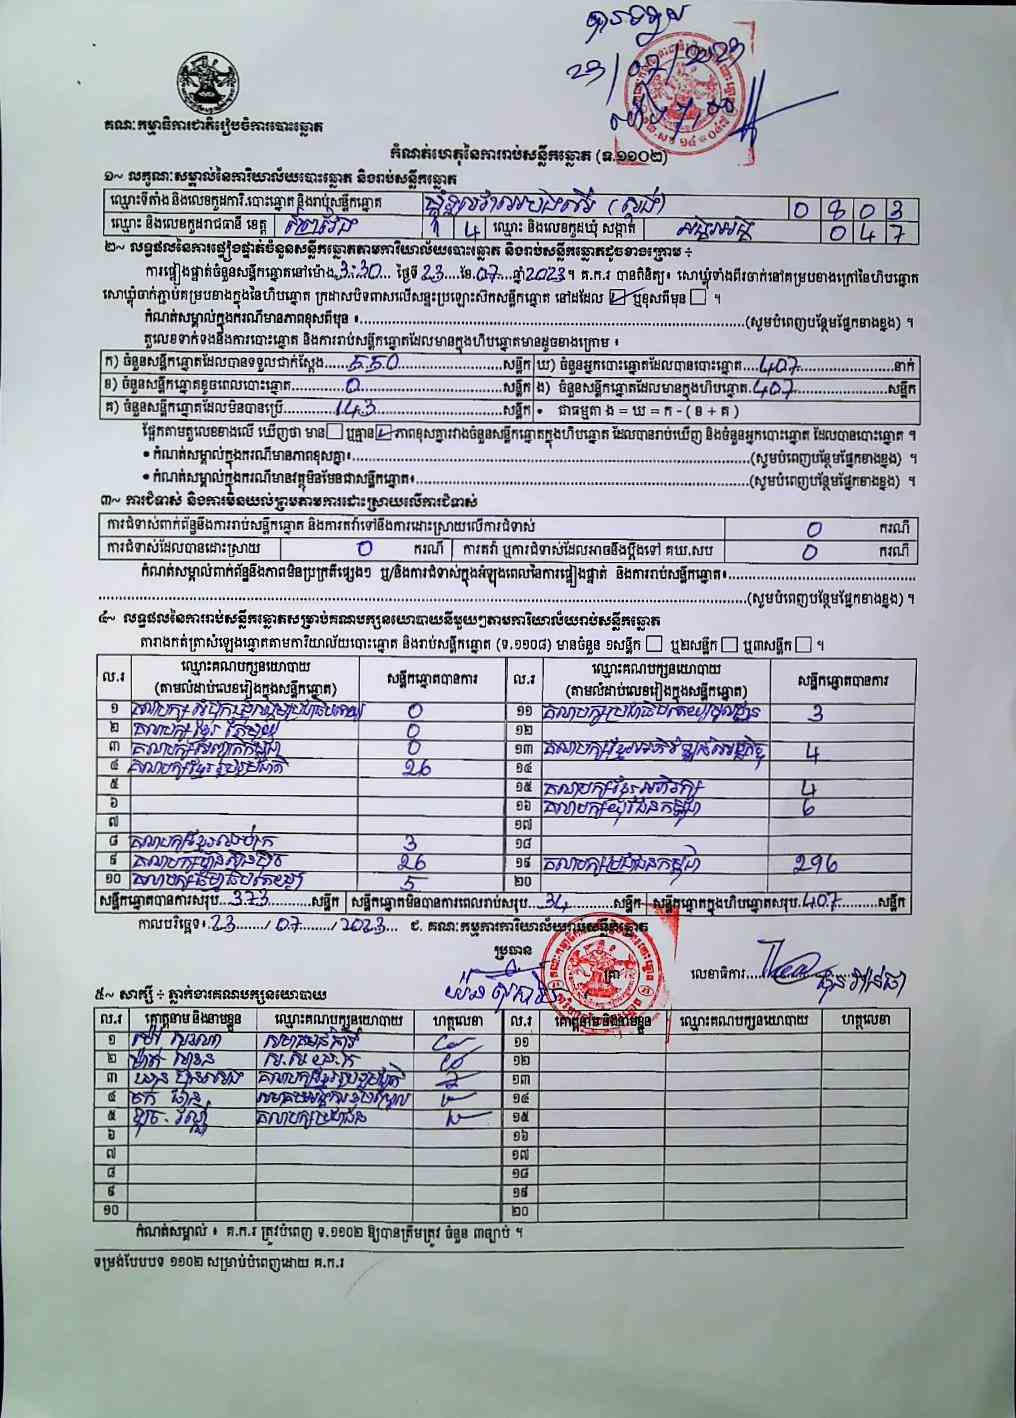 បានទទួល
23/07/2023
ម៉ោង 7,00
គណៈកម្មាធិការជាតិរៀបចំការបោះឆ្នោត
កំណត់ហេតុនៃការរាប់សន្លឹកឆ្នោត (ទ.១១០២)
១~ លក្ខណៈសម្គាល់នៃការិយាល័យបោះឆ្នោត និងរាប់សន្លឹកឆ្នោត
ឈ្មោះទីតាំង និងលេខកូដការិ.បោះឆ្នោត និងរាប់សន្លឹកឆ្នោត 0 8 0 3
ឈ្មោះ និងលេខកូដរាជធានី ខេត្ត ព្រៃវែង 1 4 ឈ្មោះ និងលេខកូដឃុំ សង្កាត់ 0 4 7
២~ លទ្ធផលនៃការផ្ទៀងផ្ទាត់ចំនួនសន្លឹកឆ្នោតតាមការិយាល័យបោះឆ្នោត និងរាប់សន្លឹកឆ្នោតដូចខាងក្រោម ÷
ការផ្ទៀងផ្ទាត់ចំនួនសន្លឹកឆ្នោតនៅម៉ោង 3:30 ថ្ងៃទី 23 ខែ 07 ឆ្នាំ 2023 ។ គ.ក.រ បានពិនិត្យ៖ សោឃ្លុំទាំងពីរចាក់នៅគម្របខាងក្រៅនៃហិបឆ្នោត
សោឃ្លុំចាក់ភ្ជាប់គម្របខាងក្នុងនៃហិបឆ្នោត ក្រដាសបិទពាសលើសន្ទះប្រឡោះស៊កសន្លឹកឆ្នោត នៅដដែល ☑ ឬខុសពីមុន ☐ ។
កំណត់សម្គាល់ក្នុងករណីមានភាពខុសពីមុន ៖ (សូមបំពេញបន្ថែមផ្នែកខាងខ្នង) ។
តួលេខទាក់ទងនឹងការបោះឆ្នោត និងការរាប់សន្លឹកឆ្នោតដែលមានក្នុងហិបឆ្នោតមានដូចខាងក្រោម ៖
ក) ចំនួនសន្លឹកឆ្នោតដែលបានទទួលជាក់ស្តែង 550 សន្លឹក ឃ) ចំនួនអ្នកបោះឆ្នោតដែលបានបោះឆ្នោត 407 នាក់
ខ) ចំនួនសន្លឹកឆ្នោតខូចពេលបោះឆ្នោត 0 សន្លឹក ង) ចំនួនសន្លឹកឆ្នោតដែលមានក្នុងហិបឆ្នោត 407 សន្លឹក
គ) ចំនួនសន្លឹកឆ្នោតដែលមិនបានប្រើ 143 សន្លឹក • ជាធម្មតា ង = ឃ = ក - ( ខ + គ )
ផ្អែកតាមតួលេខខាងលើ ឃើញថា មាន ☐ ឬគ្មាន ☑ ភាពខុសគ្នារវាងចំនួនសន្លឹកឆ្នោតក្នុងហិបឆ្នោត ដែលបានរាប់ឃើញ និងចំនួនអ្នកបោះឆ្នោត ដែលបានបោះឆ្នោត ។
• កំណត់សម្គាល់ក្នុងករណីមានភាពខុសគ្នា៖ (សូមបំពេញបន្ថែមផ្នែកខាងខ្នង) ។
• កំណត់សម្គាល់ក្នុងករណីមានវត្ថុមិនមែនជាសន្លឹកឆ្នោត៖ (សូមបំពេញបន្ថែមផ្នែកខាងខ្នង) ។
៣~ ការជំទាស់ និងការមិនយល់ព្រមតាមការដោះស្រាយលើការជំទាស់
ការជំទាស់ពាក់ព័ន្ធនឹងការរាប់សន្លឹកឆ្នោត និងការតវ៉ាទៅនឹងការដោះស្រាយលើការជំទាស់ 0 ករណី
ការជំទាស់ដែលបានដោះស្រាយ 0 ករណី ការតវ៉ា ឬការជំទាស់ដែលអាចនឹងប្តឹងទៅ គឃ.សប 0 ករណី
កំណត់សម្គាល់ពាក់ព័ន្ធនឹងភាពមិនប្រក្រតីផ្សេងៗ ឬ/និងការជំទាស់ក្នុងអំឡុងពេលនៃការផ្ទៀងផ្ទាត់ និងការរាប់សន្លឹកឆ្នោត៖
(សូមបំពេញបន្ថែមផ្នែកខាងខ្នង) ។
៤~ លទ្ធផលនៃការរាប់សន្លឹកឆ្នោតសម្រាប់គណបក្សនយោបាយនីមួយៗតាមការិយាល័យរាប់សន្លឹកឆ្នោត
តារាងកត់ត្រាសំឡេងឆ្នោតតាមការិយាល័យបោះឆ្នោត និងរាប់សន្លឹកឆ្នោត (ទ.១១០៨) មានចំនួន ១សន្លឹក ☐ ឬ២សន្លឹក ☐ ឬ៣សន្លឹក ☐ ។
ល.រ ឈ្មោះគណបក្សនយោបាយ (តាមលំដាប់លេខរៀងក្នុងសន្លឹកឆ្នោត) សន្លឹកឆ្នោតបានការ ល.រ ឈ្មោះគណបក្សនយោបាយ (តាមលំដាប់លេខរៀងក្នុងសន្លឹកឆ្នោត) សន្លឹកឆ្នោតបានការ
១ 0 ១១ គណបក្សប្រជាធិបតេយ្យមូលដ្ឋាន 3
២ 0 ១២
៣ 0 ១៣ គណបក្ស 4
៤ គណបក្សខ្មែររួបរួមជាតិ 26 ១៤
៥ ១៥ គណបក្សខ្មែរអភិរក្ស 4
៦ ១៦ គណបក្សយុវជនកម្ពុជា 6
៧ ១៧
៨ គណបក្ស 3 ១៨
៩ គណបក្សហ្វ៊ុនស៊ិនប៉ិច 26 ១៩ គណបក្សប្រជាជនកម្ពុជា 296
១០ គណបក្ស 5 ២០
សន្លឹកឆ្នោតបានការសរុប 373 សន្លឹក សន្លឹកឆ្នោតមិនបានការពេលរាប់សរុប 34 សន្លឹក សន្លឹកឆ្នោតក្នុងហិបឆ្នោតសរុប 407 សន្លឹក
កាលបរិច្ឆេទ៖ 23 / 07 / 2023 ជ. គណៈកម្មការការិយាល័យរាប់សន្លឹកឆ្នោត
ប្រធាន
ត្រា
លេខាធិការ
៥~ សាក្សី ÷ ភ្នាក់ងារគណបក្សនយោបាយ
ល.រ គោត្តនាម និងនាមខ្លួន ឈ្មោះគណបក្សនយោបាយ ហត្ថលេខា ល.រ គោត្តនាម និងនាមខ្លួន ឈ្មោះគណបក្សនយោបាយ ហត្ថលេខា
១ ១១
២ ស.ស.យ.ក ១២
៣ គណបក្សខ្មែររួបរួមជាតិ ១៣
៤ ១៤
៥ គណបក្សប្រជាជន ១៥
៦ ១៦
៧ ១៧
៨ ១៨
៩ ១៩
១០ ២០
កំណត់សម្គាល់ ៖ គ.ក.រ ត្រូវបំពេញ ទ.១១០២ ឱ្យបានត្រឹមត្រូវ ចំនួន ៣ច្បាប់ ។
ទម្រង់បែបបទ ១១០២ សម្រាប់បំពេញដោយ គ.ក.រ